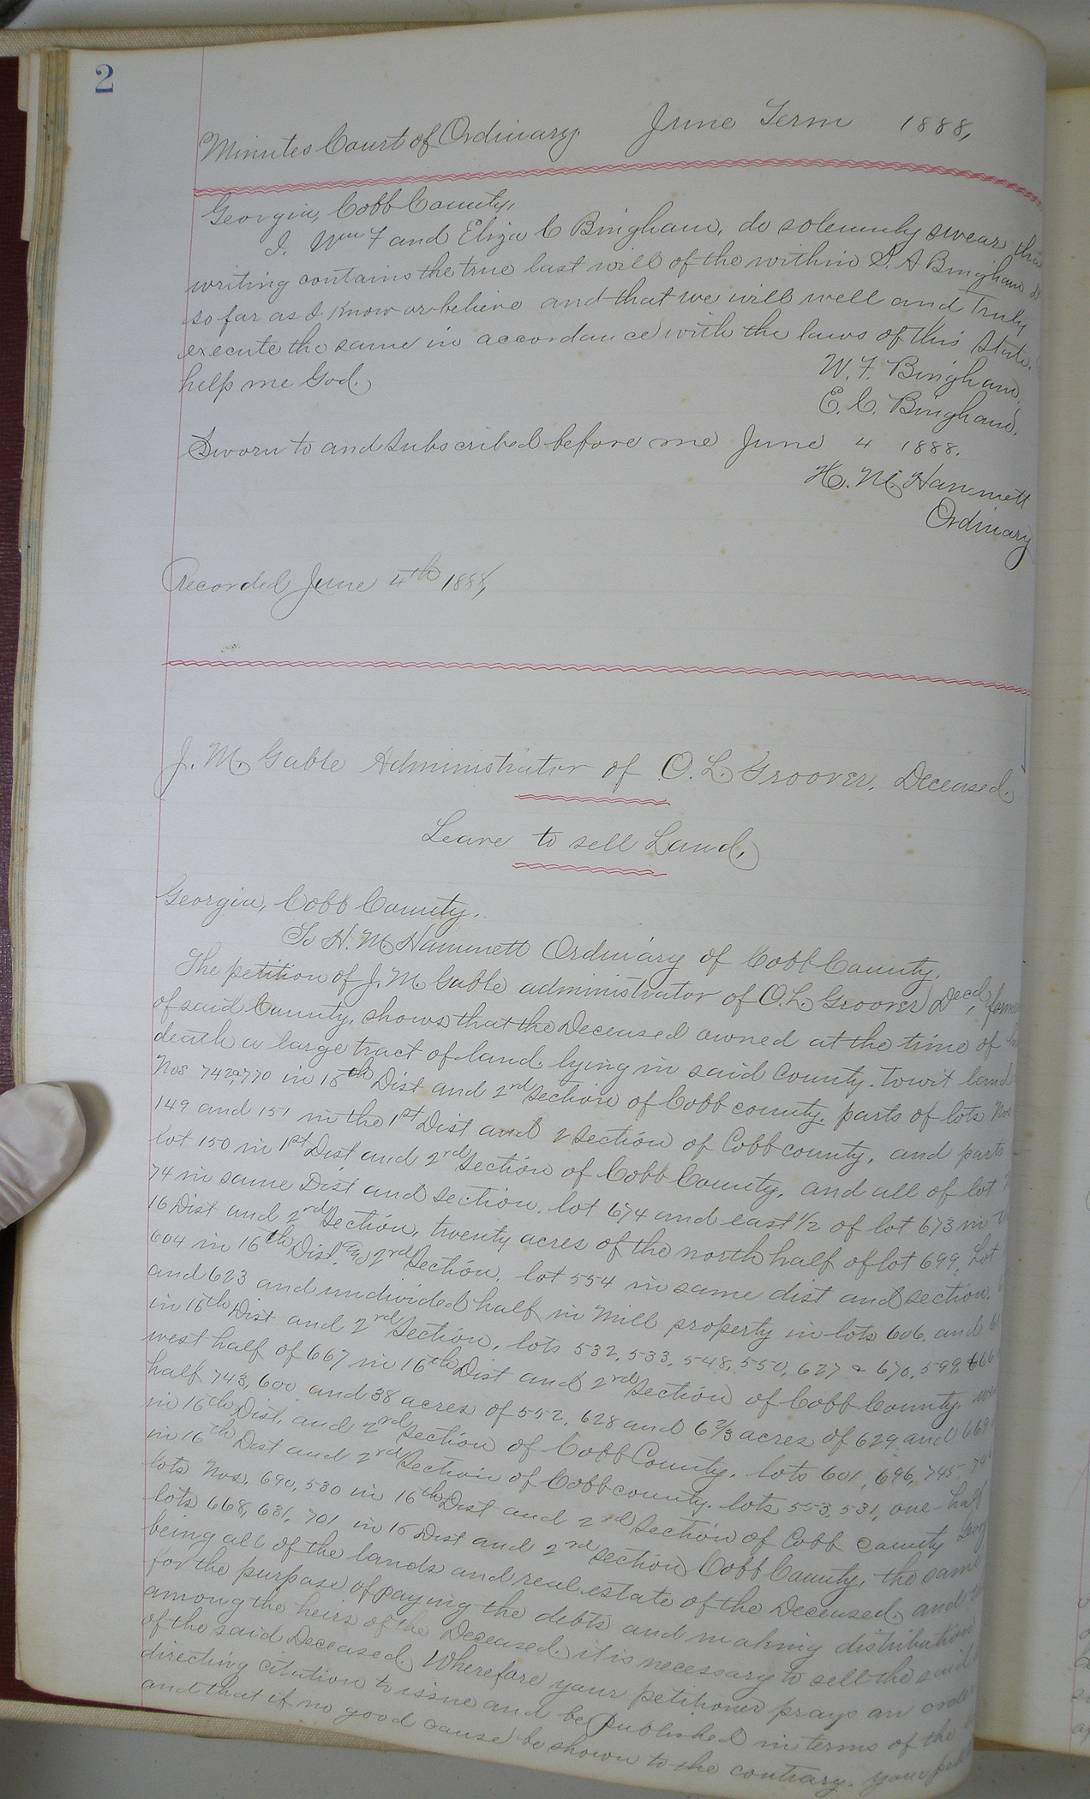 2
Minutes Court of Ordinary. June Term 1888,
Georgia, Cobb County,
I. Wm F and Eliza C Bingham, do solemnly swear this
writing contains the true last will of the within S. A Bingham
so far as I know or believe and that we will well and truly
execute the same in accordance with the laws of this State.
help me God.
W. F. Bingham,
E. C. Bingham.
Sworn to and Subscribed before me June 4 1888.
H. M. Hammett
Ordinary
Recorded June 4th 1888,
J. M. Gable Administrator of O. L. Groover, Deceased.
Leave to sell Land,
Georgia, Cobb County.
To H. M Hammett Ordinary of Cobb County.
The petition of J. M. Gable administrator of O. L. Groover Decd,
of said County, shows that the Deceased owned at the time of
death a large tract of land, lying in said County. towit land
Nos 742 & 770 in 16th Dist and 2nd Section of Cobb county. parts of lots Nos
149 and 151 in the 1st Dist and 2 Section of Cobb county, and parts
lot 150 in 1st Dist and 2rd Section of Cobb County. and all of lot
74 in same Dist and section. lot 674 and east 1/2 of lot 673 in
16 Dist and 2rd Section, twenty acres of the north half of lot 699, Lot
604 in 16th Dist. and 2rd Section. lot 554 in same dist and section.
and 623 and undivided half in Mill property in lots 606, and
in 16th Dist and 2rd Section, lots 532, 533, 548, 550, 627 & 670, 599,
west half of 667 in 16th Dist and 2rd Section of Cobb County,
half 743, 600 and 38 acres of 552, 628 and 6 2/3 acres of 629 and 669
in 16th Dist. and 2rd Section of Cobb County. lots 601, 696, 745,
in 16th Dist and 2rd Section of Cobb county. lots 553, 531, one-half
lots Nos. 690, 530 in 16th Dist and 2rd Section of Cobb County
lots 668, 631, 701 in 16 Dist and 2rd Section Cobb County, the same
being all of the lands and real estate of the Deceased, and
for the purpose of paying the debts and making distribution
among the heirs of the Deceased, it is necessary to sell the said
of the said Deceased, Wherefore your petitioner prays an order
directing citation to issue and be published in terms of the
and that if no good cause be shown to the contrary. your